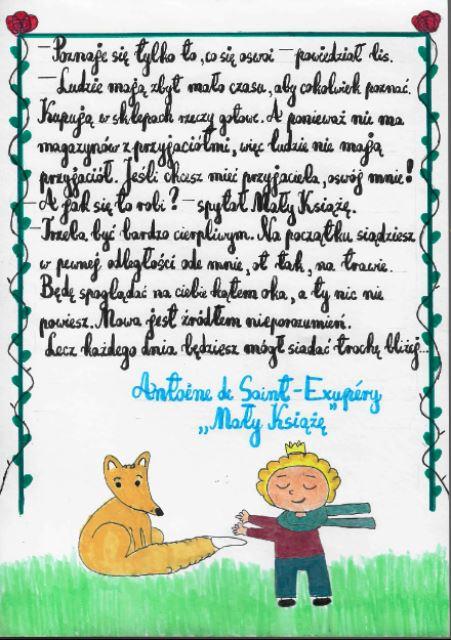 – Poznaje się tylko to, co się oswoi – powiedział lis.
– Ludzie mają zbyt mało czasu, aby cokolwiek poznać.
Kupują w sklepach rzeczy gotowe. A ponieważ nie ma
magazynów z przyjaciółmi, więc ludzie nie mają
przyjaciół. Jeśli chcesz mieć przyjaciela, oswój mnie!
– A jak się to robi? – spytał Mały Książę.
– Trzeba być bardzo cierpliwym. Na początku siądziesz
w pewnej odległości ode mnie, ot tak, na trawie.
Będę spoglądać na ciebie kątem oka, a ty nic nie
powiesz. Mowa jest źródłem nieporozumień.
Lecz każdego dnia będziesz mógł siadać trochę bliżej...
Antoine de Saint-Exupéry
„Mały Książę”